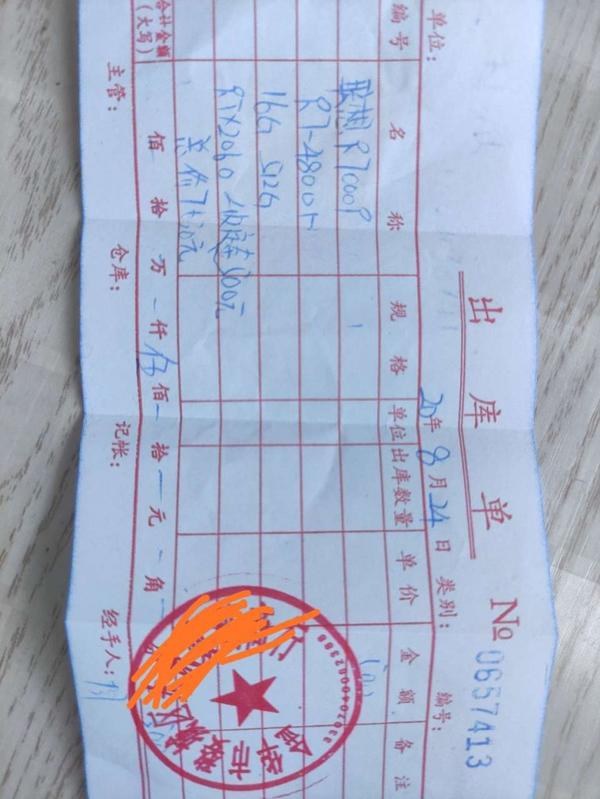 出库单
No 0657413
单位： 20年8月24日 类别： 编号：
编号 名称 规格 单位 出库数量 单价 金额 备注
联想R7000P
R7-4800H
16G 512G
RTX2060
总价
合计金额（大写） 佰 拾 万 仟 伍 佰 拾 元 角
主管： 仓库： 记帐： 经手人：